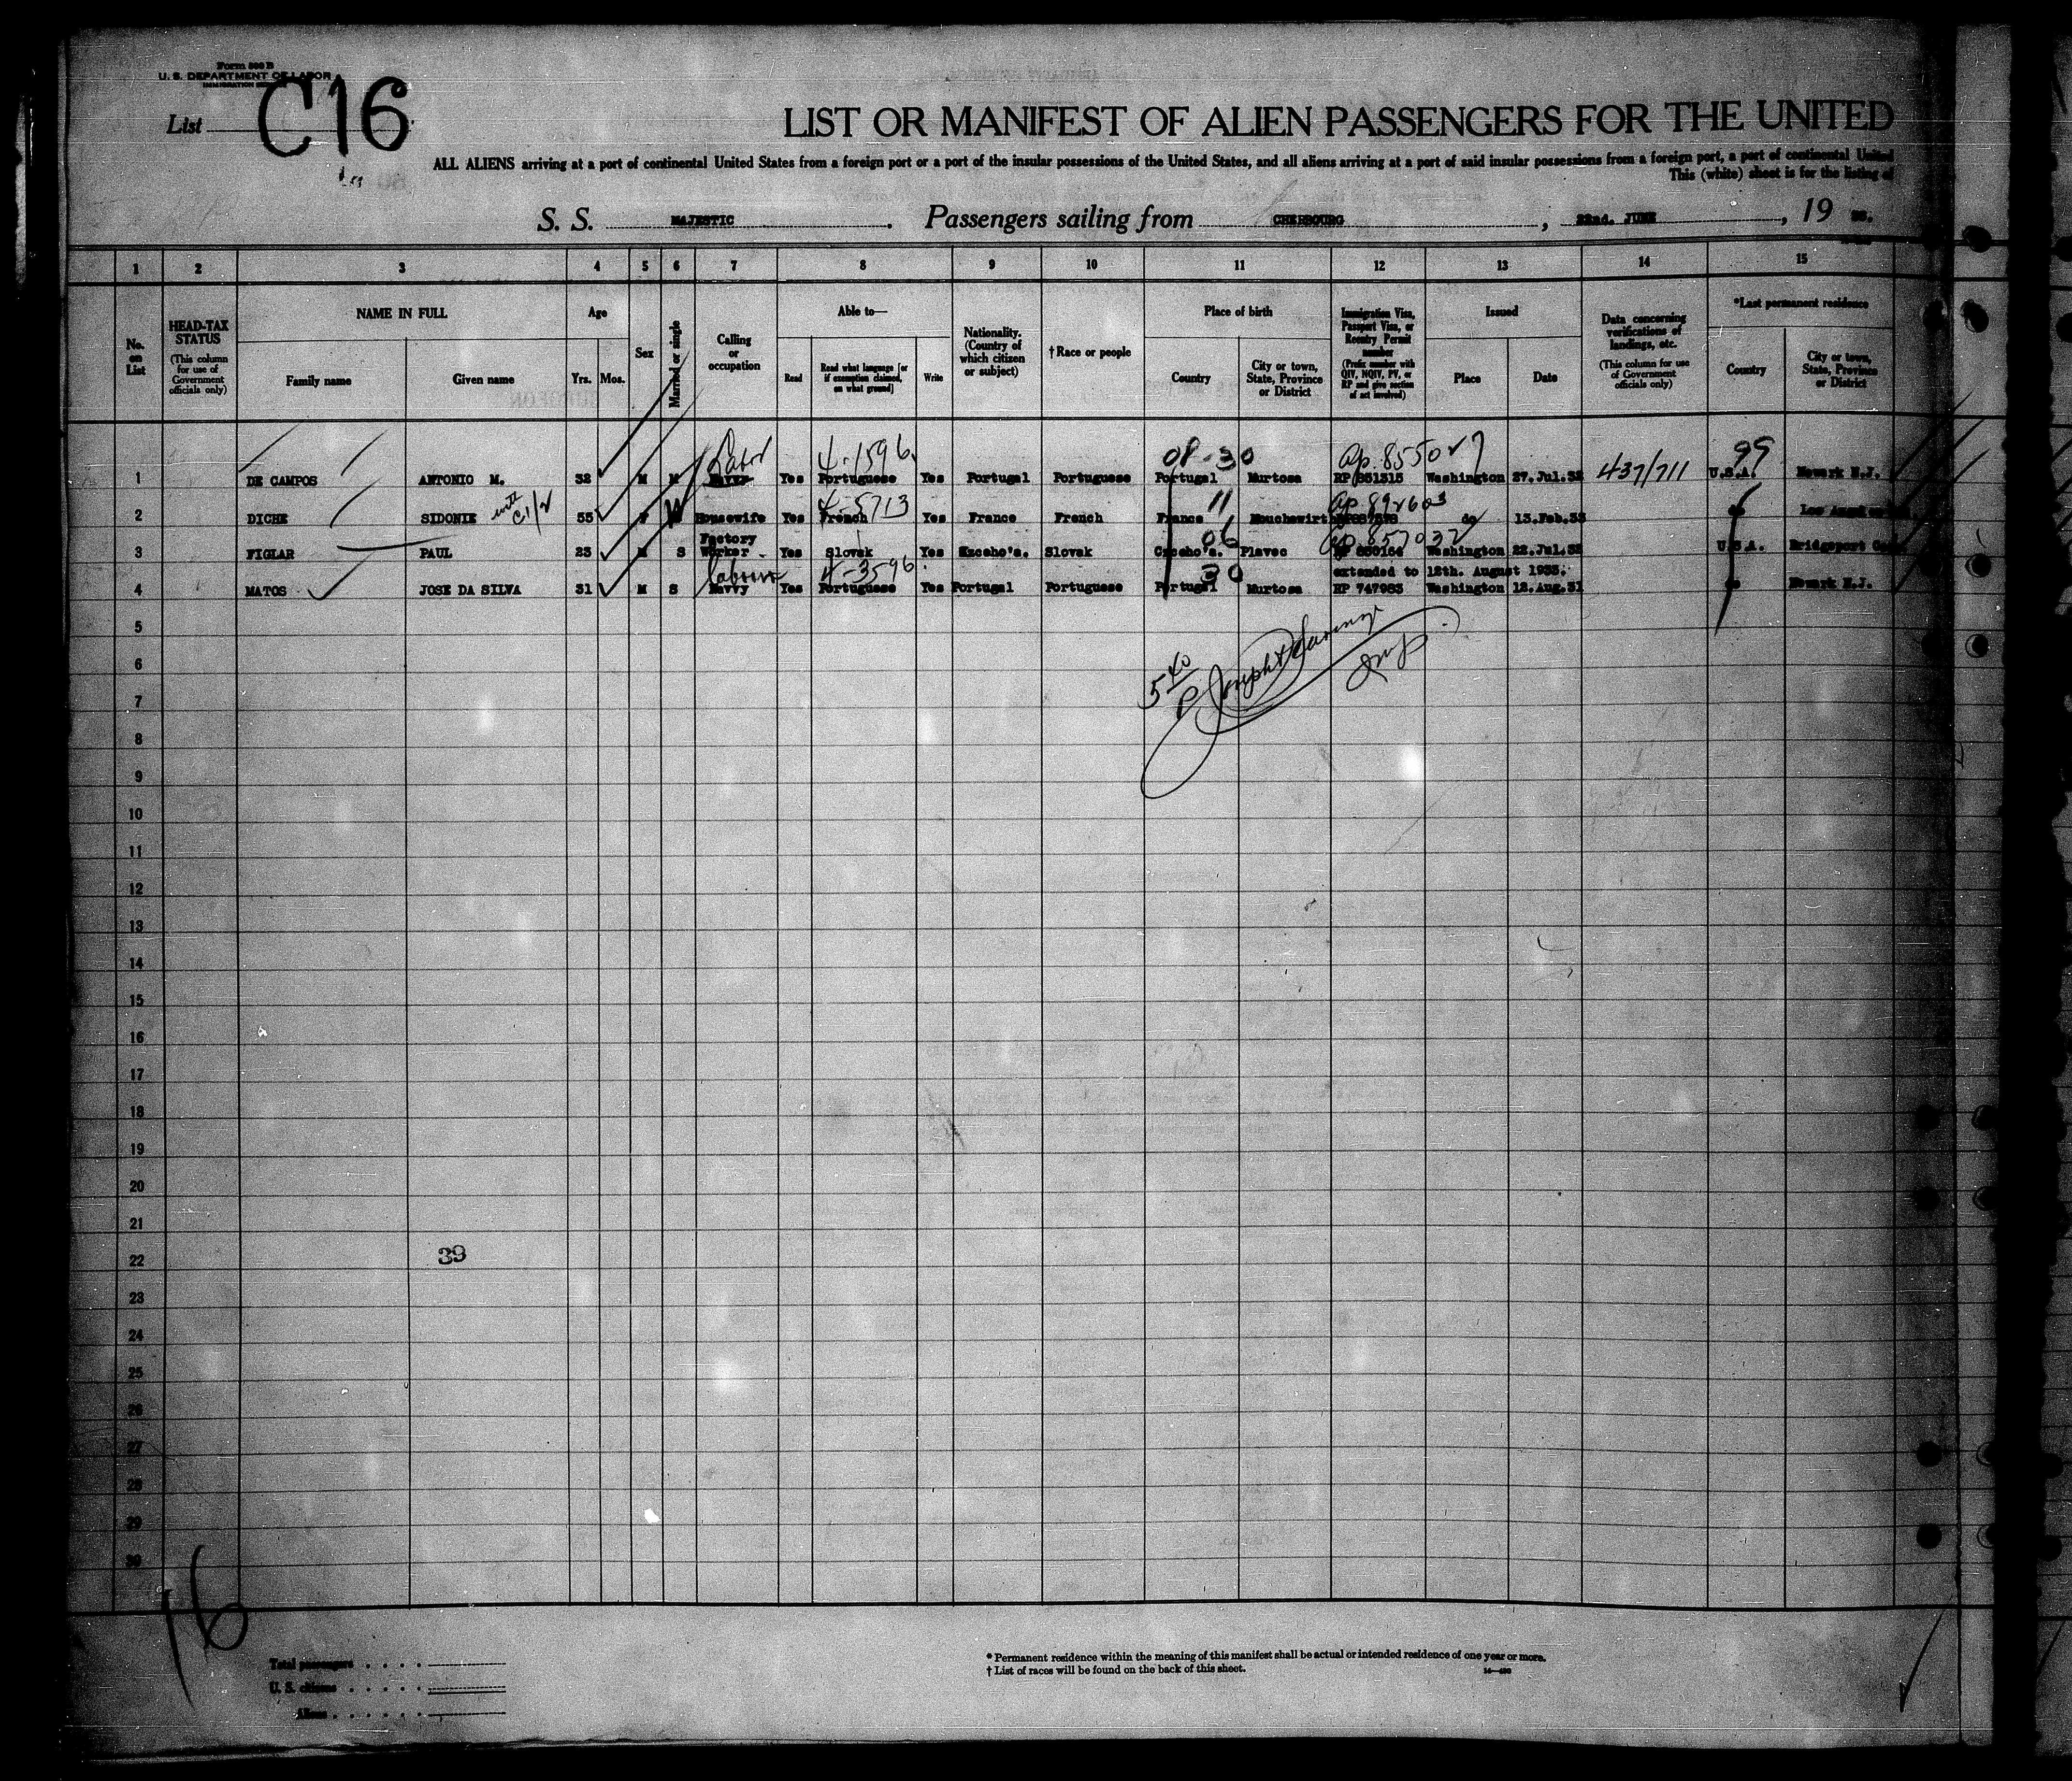 Form 500 B
U. S. DEPARTMENT OF LABOR
List C16
LIST OR MANIFEST OF ALIEN PASSENGERS FOR THE UNITED
ALL ALIENS arriving at a port of continental United States from a foreign port or a port of the insular possessions of the United States, and all aliens arriving at a port of said insular possessions from a foreign port, a port of continental United
This (white) sheet is for the listing of
S. S. MAJESTIC. Passengers sailing from CHERBOURG, 22nd. JUNE, 19
1 2 3 4 5 6 7 8 9 10 11 12 13 14 15
No. on List
HEAD-TAX STATUS (This column for use of Government officials only)
NAME IN FULL Family name Given name
Age Yrs. Mos.
Sex
Married or single
Calling or occupation
Able to— Read Read what language [or if exemption claimed, on what ground] Write
Nationality. (Country of which citizen or subject)
† Race or people
Place of birth Country City or town, State, Province or District
Immigration Visa, Passport Visa, or Reentry Permit number (Prefix number with QIV, NQIV, PV, or RP and give section of act involved)
Issued Place Date
Data concerning verifications of landings, etc. (This column for use of Government officials only)
*Last permanent residence Country City or town, State, Province or District
4-1596 08-30 99
1 DE CAMPOS ANTONIO M. 32 M M Yes Portuguese Yes Portugal Portuguese Portugal Murtosa Washington 27.Jul.32 437/711 U.S.A. Newark N.J.
4-5713 11
2 DICHE SIDONIE 55 W Housewife Yes French Yes France French France do 13.Feb.33
Factory 06
3 FIGLAR PAUL 23 M S Worker Yes Slovak Yes Slovak Plavec Washington 22.Jul.32 U.S.A. Bridgeport
4-3596 30 extended to 12th. August 1933.
4 MATOS JOSE DA SILVA 31 M S Navvy Yes Portuguese Yes Portugal Portuguese Portugal Murtosa RP 747983 Washington 12.Aug.31 Newark N.J.
5
5 40 P
6
7
8
9
10
11
12
13
14
15
16
17
18
19
20
21
22 39
23
24
25
26
27
28
29
30
16
Total passengers
U. S. citizens
Aliens
* Permanent residence within the meaning of this manifest shall be actual or intended residence of one year or more.
† List of races will be found on the back of this sheet.